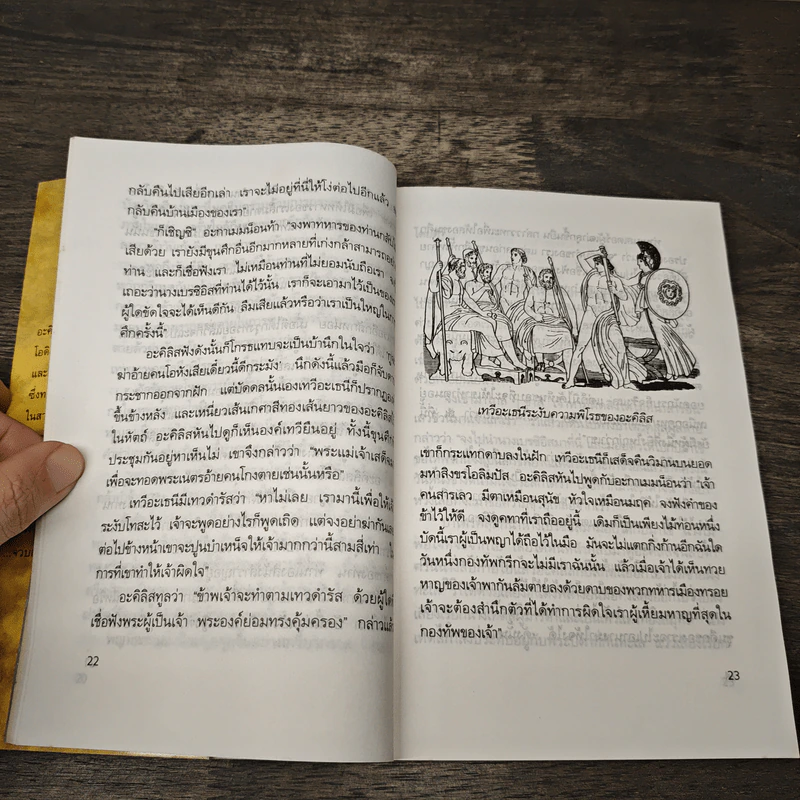 กลับคืนไปเสียอีกเล่า เราจะไม่อยู่ที่นี่ให้โง่ต่อไปอีกแล้ว
กลับคืนบ้านเมืองของเรา"
"ก็เชิญซิ" อะกาเมมน็อนท้า "จงพาทหารของท่านกลับ
เสียด้วย เรายังมีขุนศึกอื่นอีกมากหลายที่เก่งกล้าสามารถ
ท่าน และก็เชื่อฟังเรา ไม่เหมือนท่านที่ไม่ยอมนับถือเรา
เถอะว่านางเบรซิอิสที่ท่านได้ไว้นั้น เราก็จะเอามาไว้เป็นของ
ผู้ใดขัดใจจะได้เห็นดีกัน ลืมเสียแล้วหรือว่าเราเป็นใหญ่ใน
ศึกครั้งนี้"
อะคิลิสฟังดังนั้นก็โกรธแทบจะเป็นบ้านึกในใจว่า
ฆ่าอ้ายคนโอหังเสียเดี๋ยวนี้ดีกระมัง' นึกดังนี้แล้วมือก็จับ
กระชากออกจากฝัก แต่บัดดลนั้นเองเทวีอะเธนีก็ปรากฏ
ขึ้นข้างหลัง และเหนี่ยวเส้นเกศาสีทองเส้นยาวของอะคิลิส
ในหัตถ์ อะคิลิสหันไปดูก็เห็นองค์เทวียืนอยู่ ทั้งนี้ขุนศึก
ประชุมกันอยู่หาเห็นไม่ เขาจึงกล่าวว่า "พระแม่เจ้าเสด็จ
เพื่อจะทอดพระเนตรอ้ายคนโกงตายเช่นนั้นหรือ"
เทวีอะเธนีมีเทวดำรัสว่า "หาไม่เลย เรามานี้เพื่อให้
ระงับโทสะไว้ เจ้าจะพูดอย่างไรก็พูดเถิด แต่จงอย่าฆ่ากัน
ต่อไปข้างหน้าเขาจะปูนบำเหน็จให้เจ้ามากกว่านี้สามสี่เท่า
การที่เขาทำให้เจ้าผิดใจ"
อะคิลิสทูลว่า "ข้าพเจ้าจะทำตามเทวดำรัส ด้วยผู้ใด
เชื่อฟังพระผู้เป็นเจ้า พระองค์ย่อมทรงคุ้มครอง" กล่าวแล้ว
22
เทวีอะเธนีระงับความพิโรธของอะคิลิส
เขาก็กระแทกดาบลงในฝัก เทวีอะเธนีก็เสด็จคืนวิมานบนยอด
มหาสิงขรโอลิมปัส อะคิลิสหันไปพูดกับอะกาเมมน็อนว่า "เจ้า
คนสารเลว มีตาเหมือนสุนัข หัวใจเหมือนมฤค จงฟังคำของ
ข้าไว้ให้ดี จงดูคทาที่เราถืออยู่นี้ เดิมก็เป็นเพียงไม้ท่อนหนึ่ง
บัดนี้เราผู้เป็นพญาได้ถือไว้ในมือ มันจะไม่แตกกิ่งก้านอีกฉันใด
วันหนึ่งกองทัพกรีกจะไม่มีเราฉันนั้น แล้วเมื่อเจ้าได้เห็นทวย
หาญของเจ้าพากันล้มตายลงด้วยดาบของพวกทหารเมืองทรอย
เจ้าจะต้องสำนึกตัวที่ได้ทำการผิดใจเราผู้เหี้ยมหาญที่สุดใน
กองทัพของเจ้า"
23